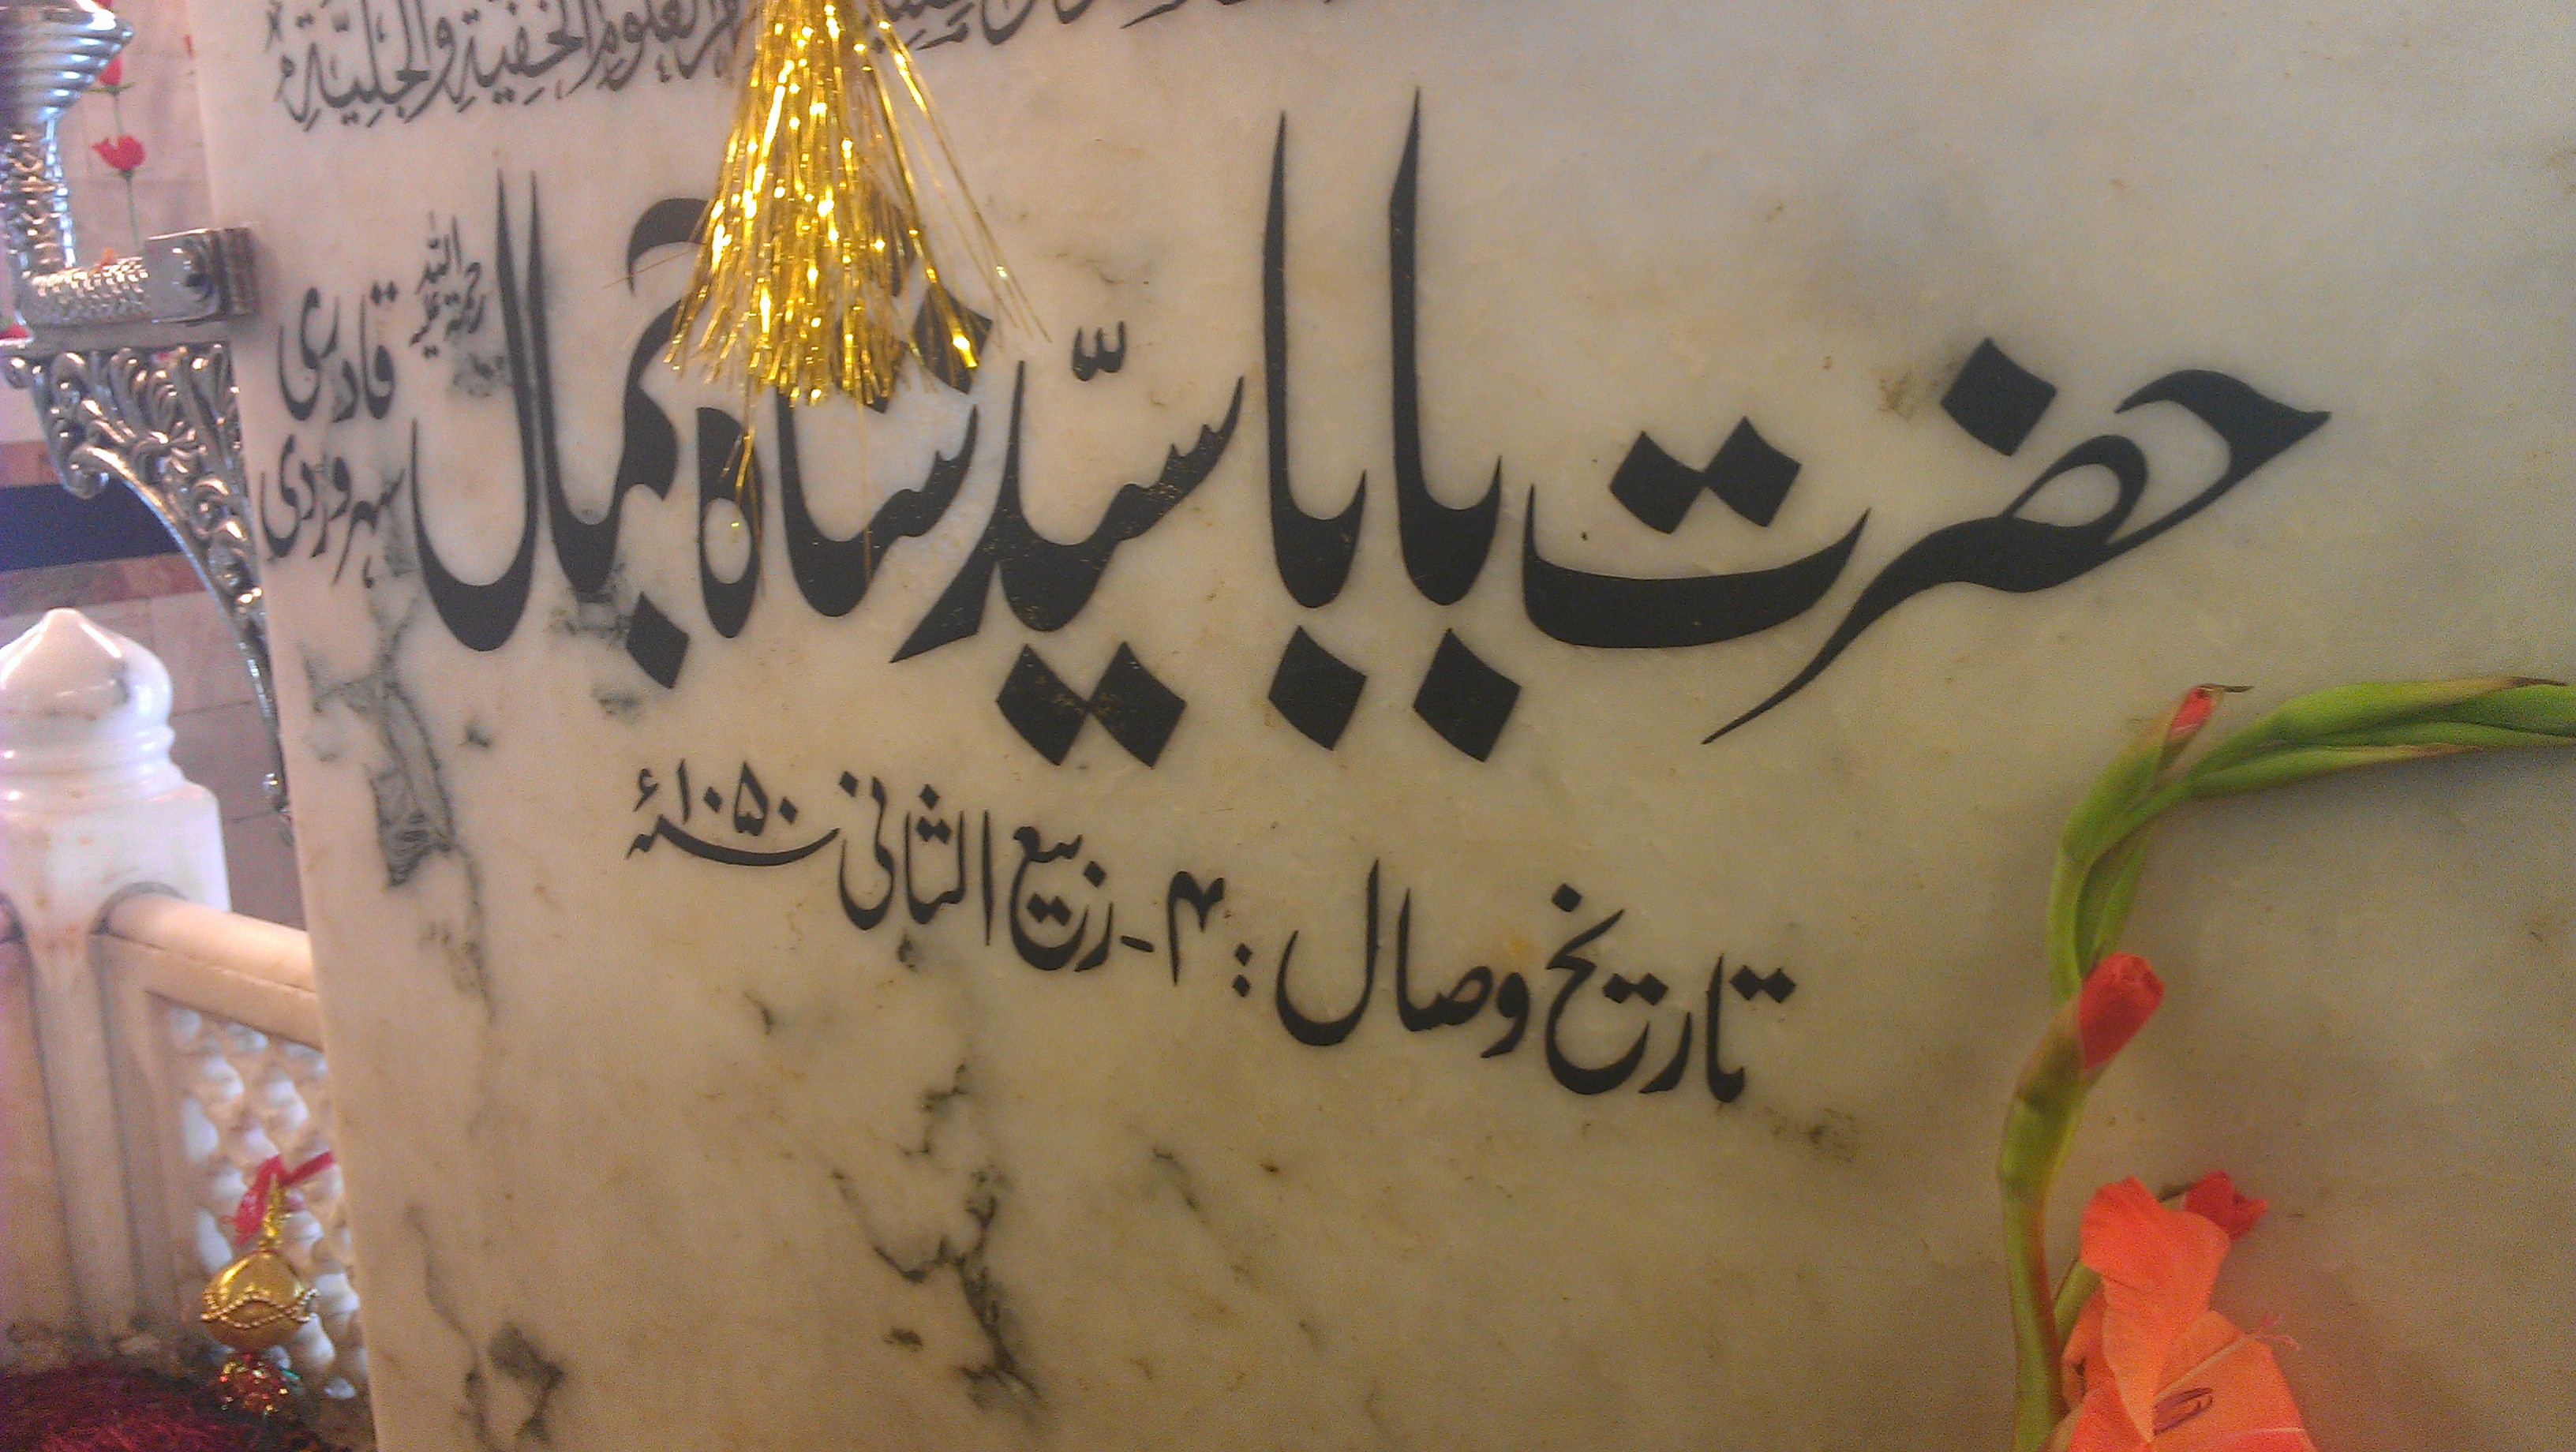 العلوم الخفية والجلية
حضرت بابا سیّد شاہ جمال رحمۃ اللہ علیہ قادری سہروردی
تاریخ وصال : ۴۔ ربیع الثانی ۱۰۵۰ء